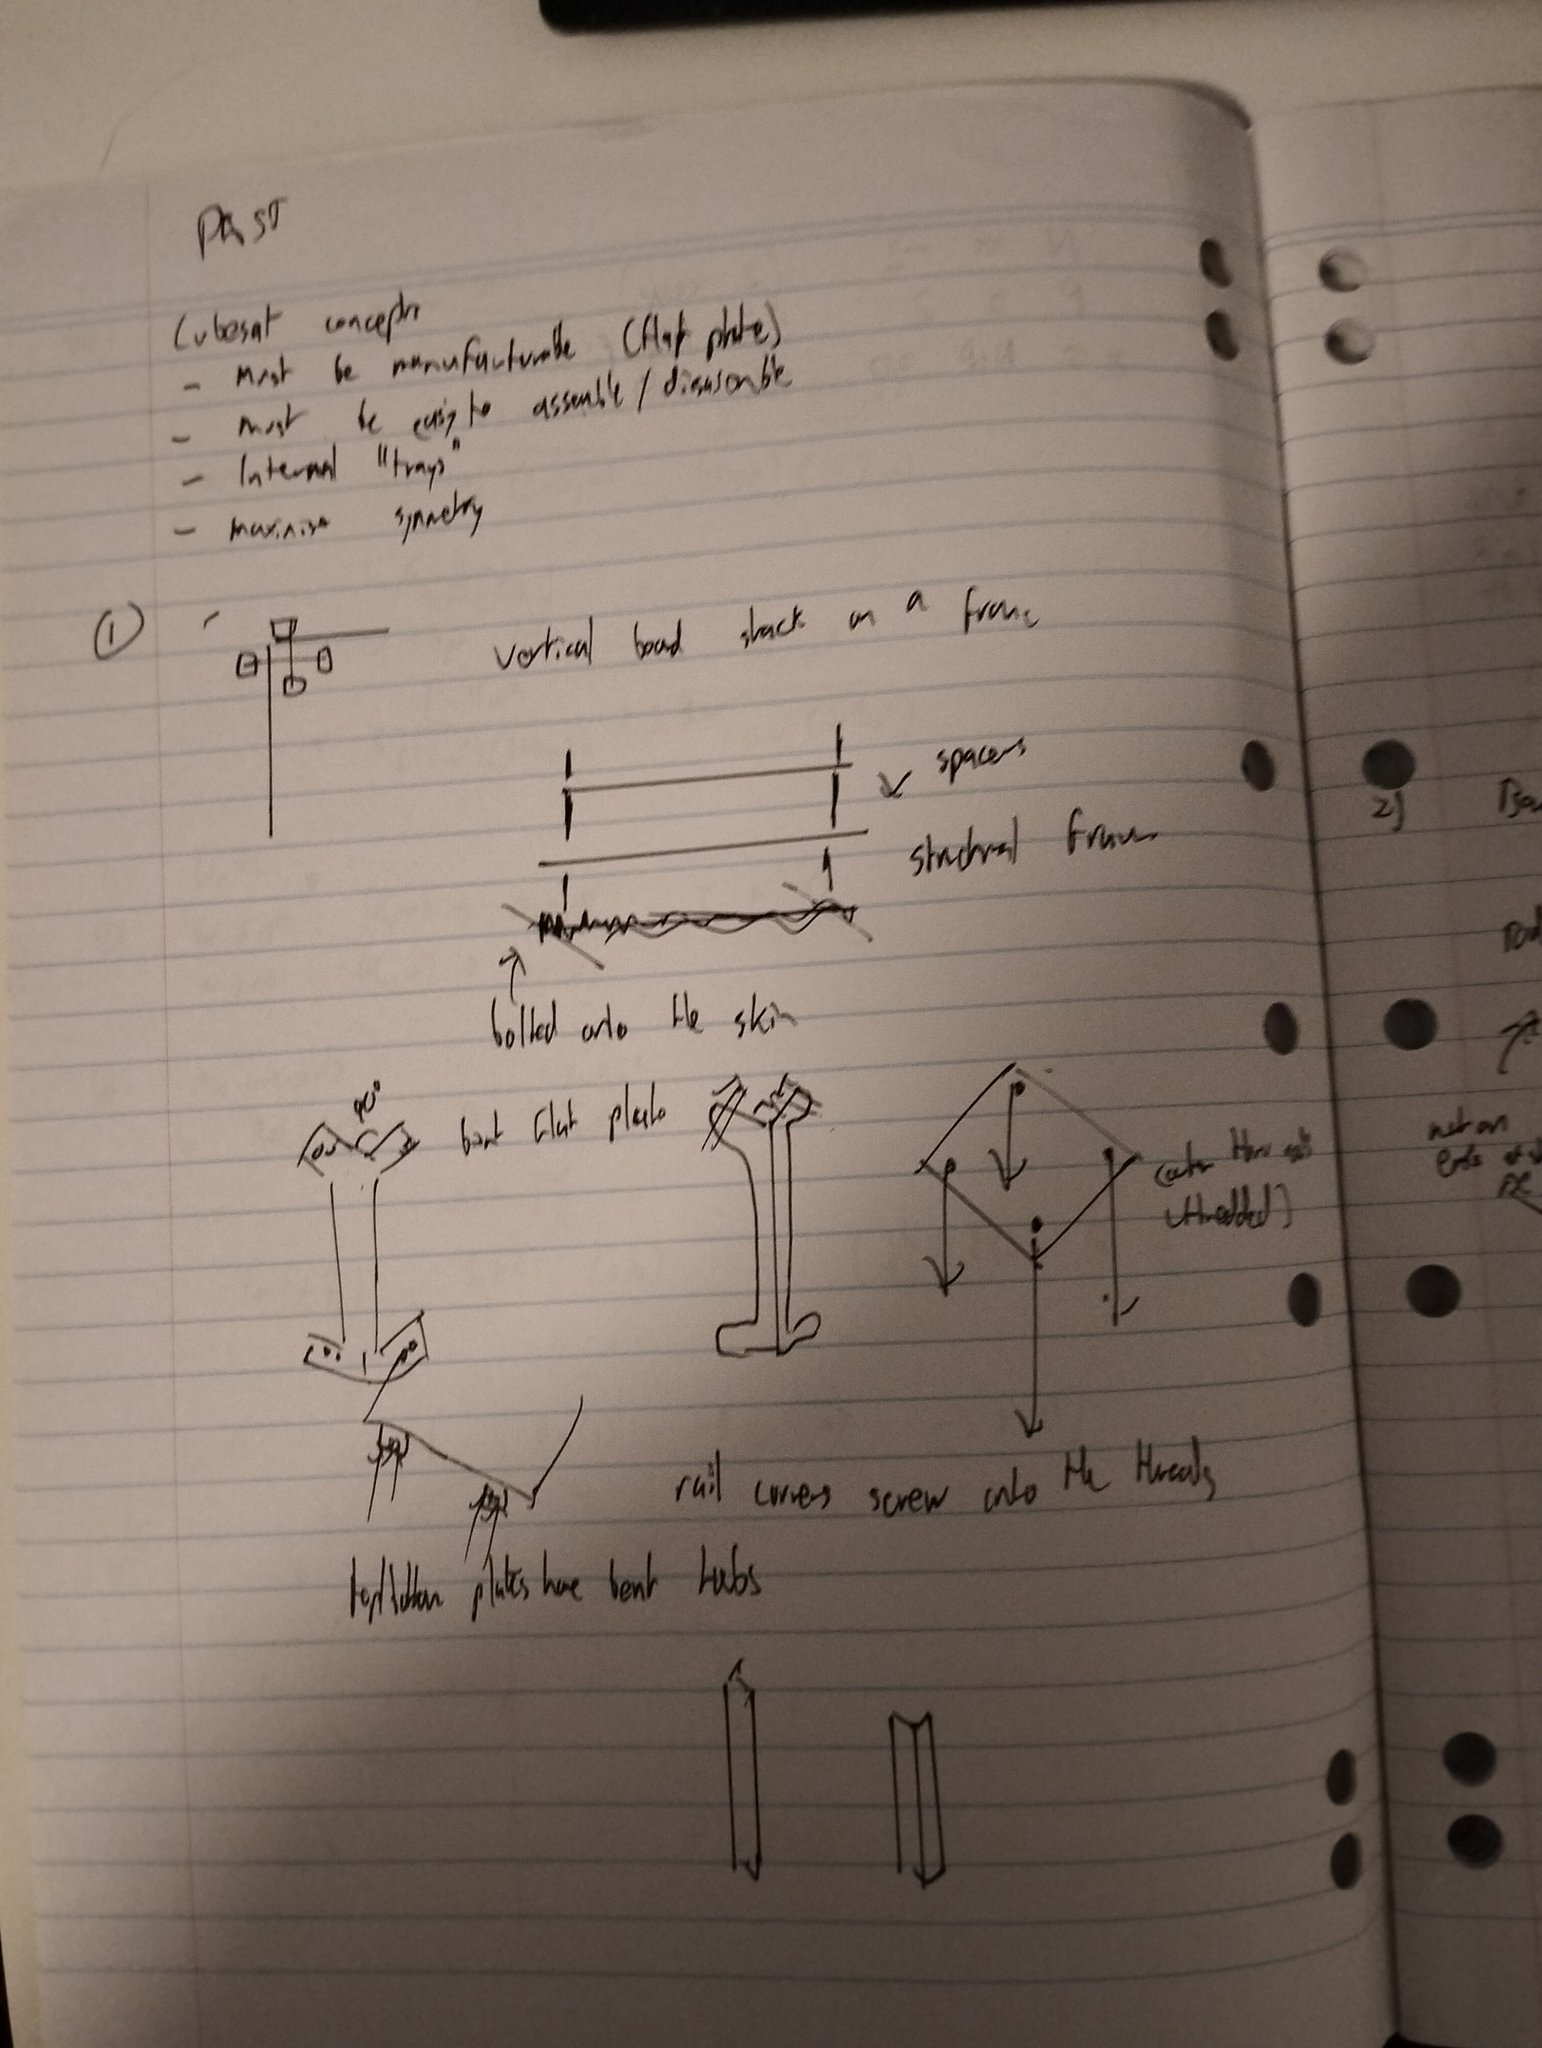 PAST
Cubesat concepts
- must be manufacturable (flat plate)
- must be easy to assemble / disassemble
- Internal "trays"
- maximise symmetry
①
vertical board stack on a frame
spacers
structural frame
bolted onto the skin
90°
bent flat plate
(outer
threaded)
rail corners screw onto the threads
top/bottom plates have bent tabs
2)